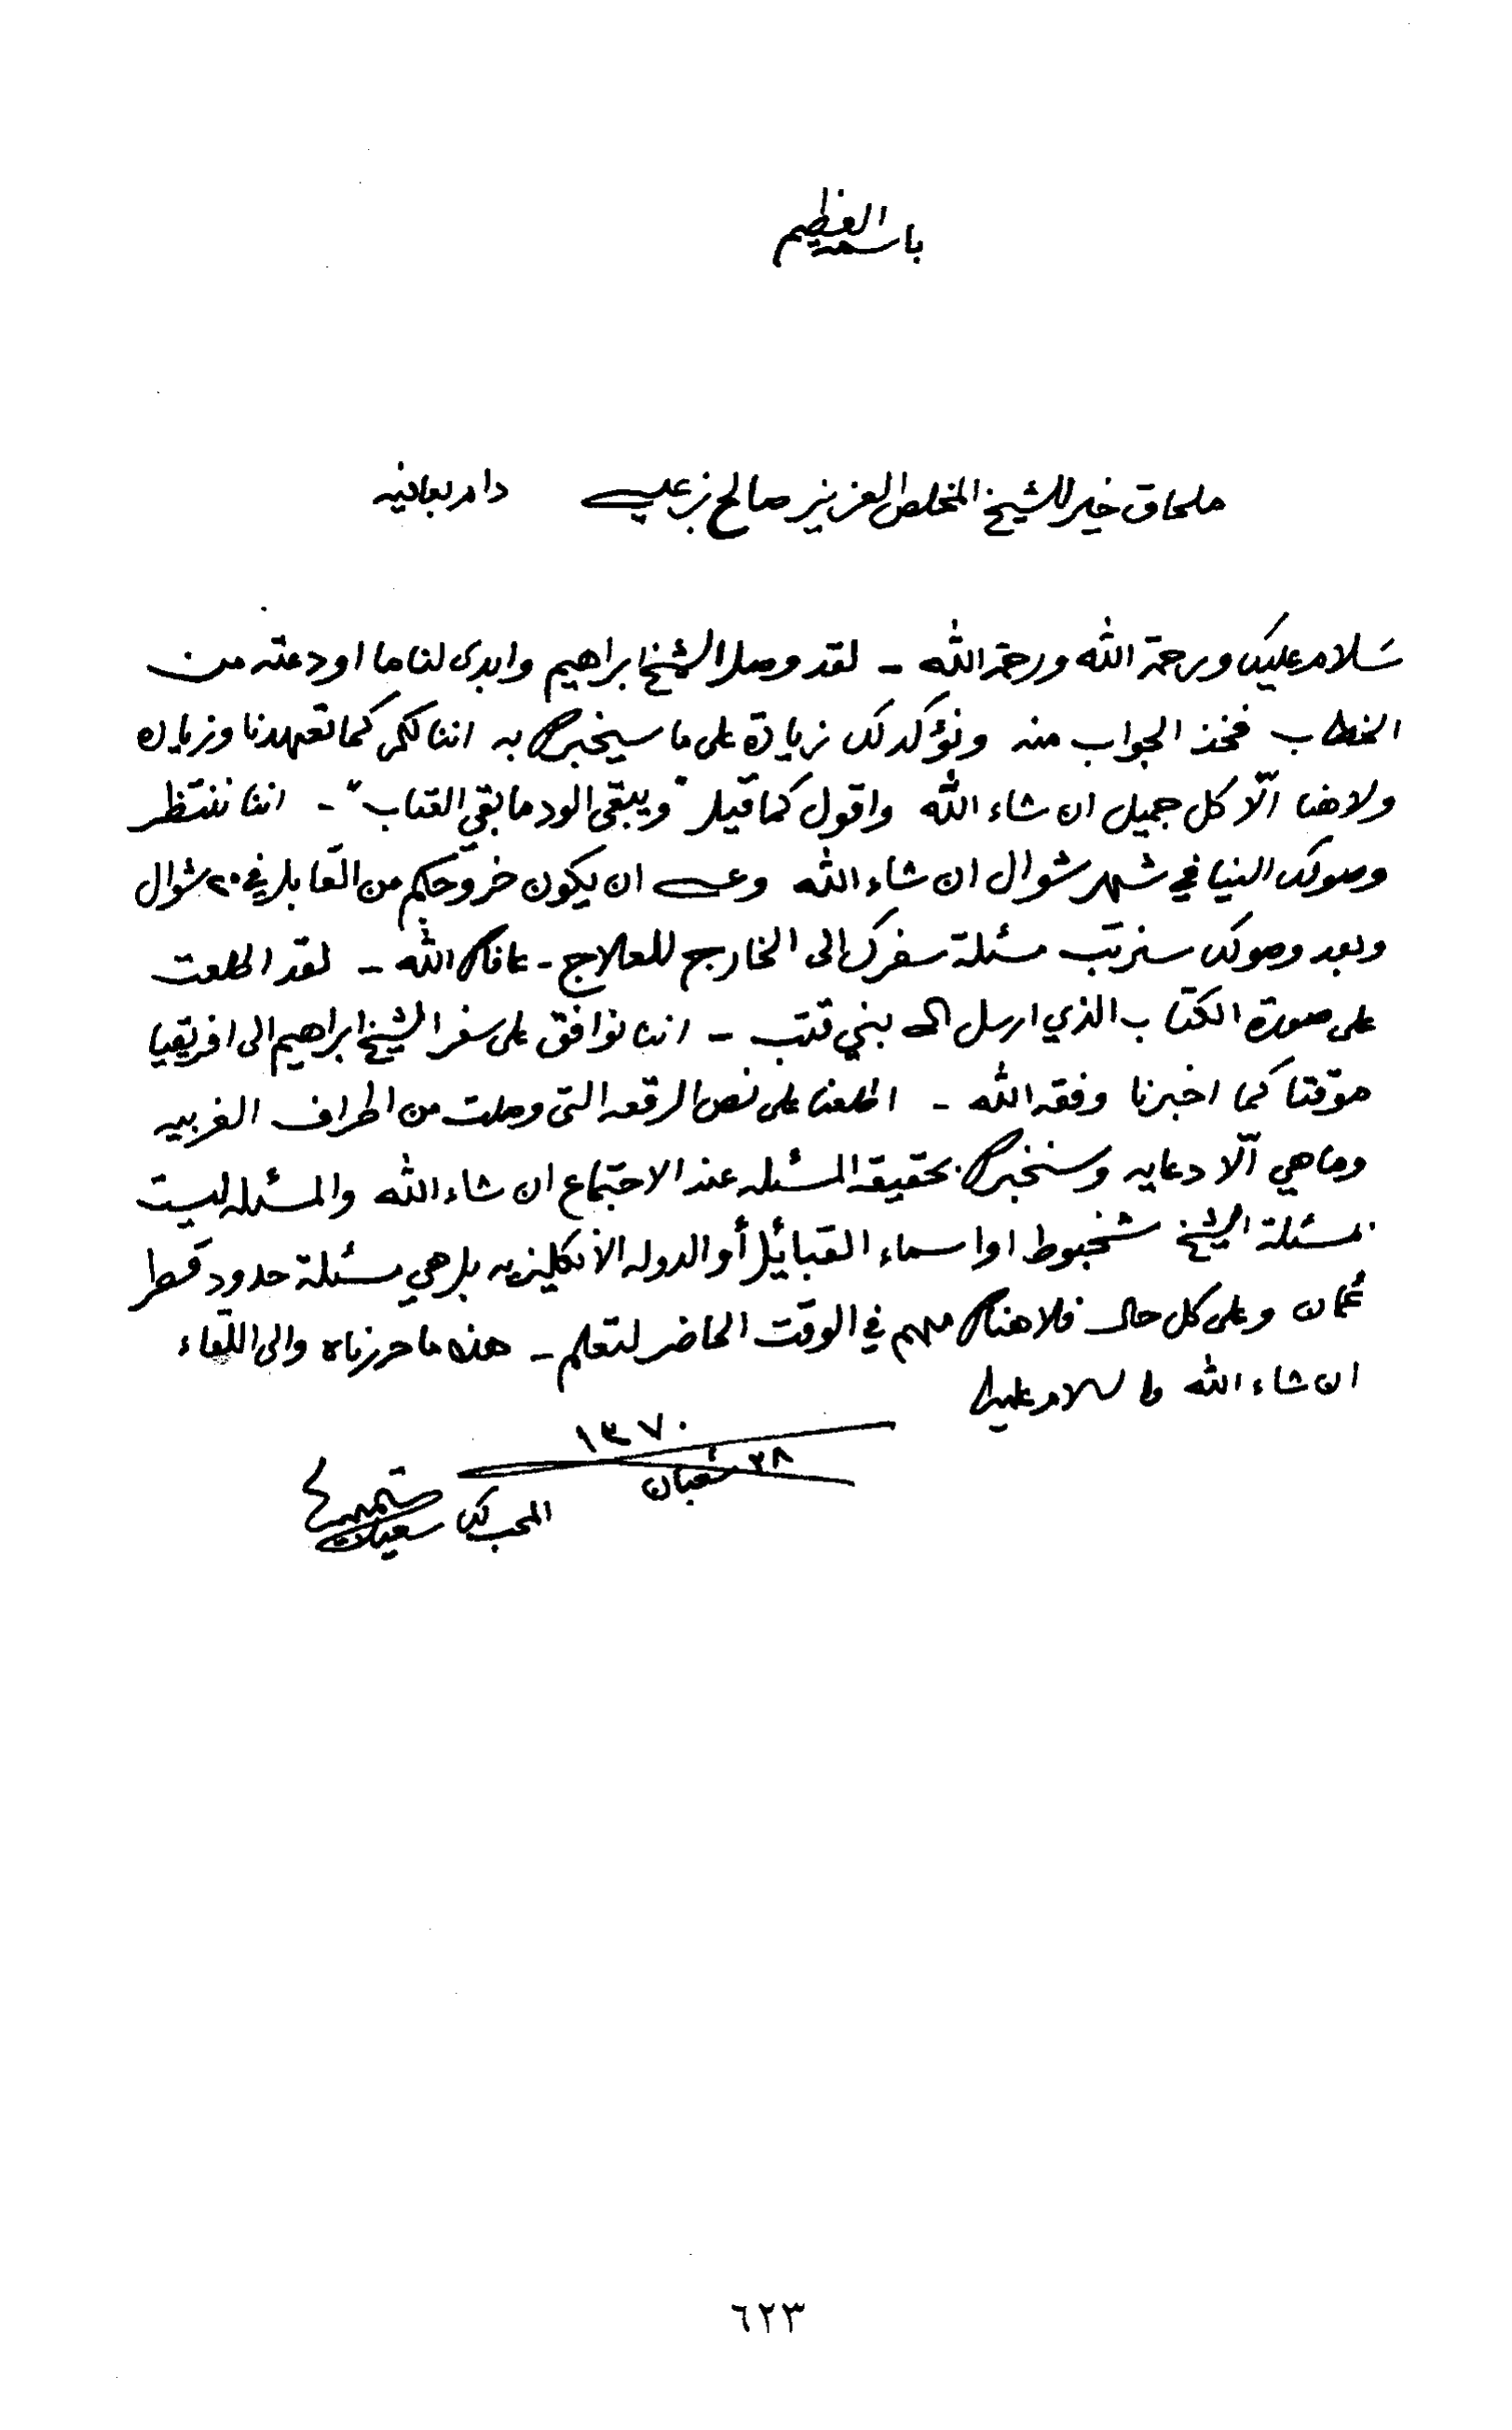 باسمه العظيم
ملحاق خير للشيخ المخلص العزيز صالح بن عيسى دام بعافيه
سلام عليك ورحمة الله ورحمة الله - لقد وصل الشيخ ابراهيم وابدى لنا ما اودعته من
الخطاب فخذ الجواب منه ونؤكد لك زيادة على ما سيخبرك به اننا لكم كما تعهدنا وزياده
ولا هنا الّا كل جميل ان شاء الله واقول كما قيل "ويبقى الود ما بقي العتاب" - اننا ننتظر
وصولك الينا في شهر شوال ان شاء الله وعسى ان يكون خروجكم من القابل في ٢٠ شوال
وبعد وصولك سنرتب مسئلة سفرك الى الخارج للعلاج - عافاك الله - لقد اطلعت
على صورة الكتاب الذي ارسل الى بني قتب - اننا نوافق على سفر الشيخ ابراهيم الى افريقيا
موقتا كما اخبرنا وفقه الله - اطلعنا على نص الرقعه التي وصلت من اطراف الغربيه
وما هي الّا دعايه وسنخبرك بحقيقة المسئله عند الاجتماع ان شاء الله والمسئله ليست
بمسئلة الشيخ شخبوط او اسماء القبائل أو الدوله الأنكليزيه بل هي مسئلة حدود قطر
عُمان وعلى كل حال فلا هناك مهم في الوقت الحاضر لتعلم - هذه ما حررناه والى اللقاء
ان شاء الله والسلام عليك
١٣٧٠
٢٨ شعبان
المحب لك سعيد بن تيمور
٦٢٣